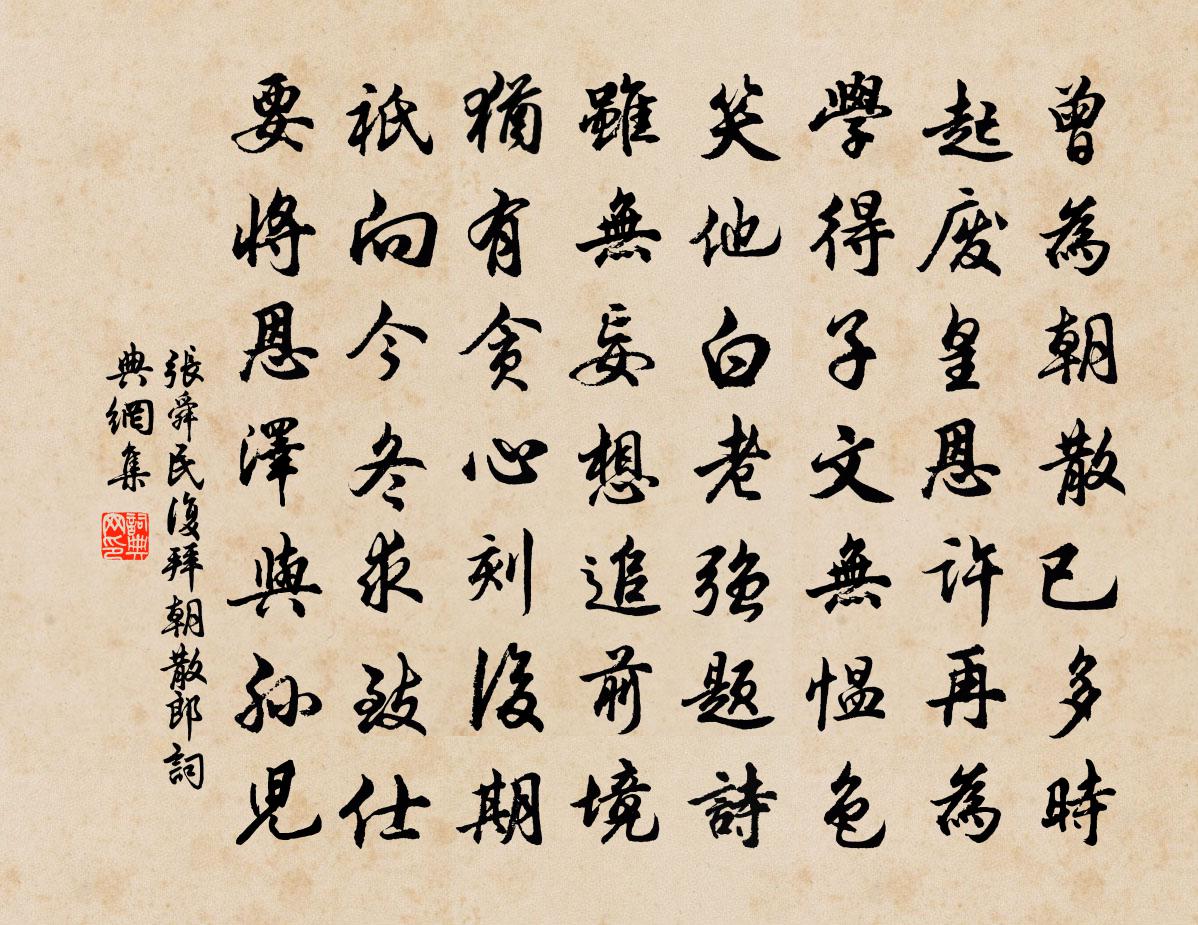 曾為朝散已多時
起廢皇恩許再為
學得子文無愠色
笑他白老强題詩
雖無妄想追前境
猶有貪心刻後期
祗向今冬求致仕
要將恩澤與孫兒
張舜民復拜朝散郎詞
典網集
詞典
网印